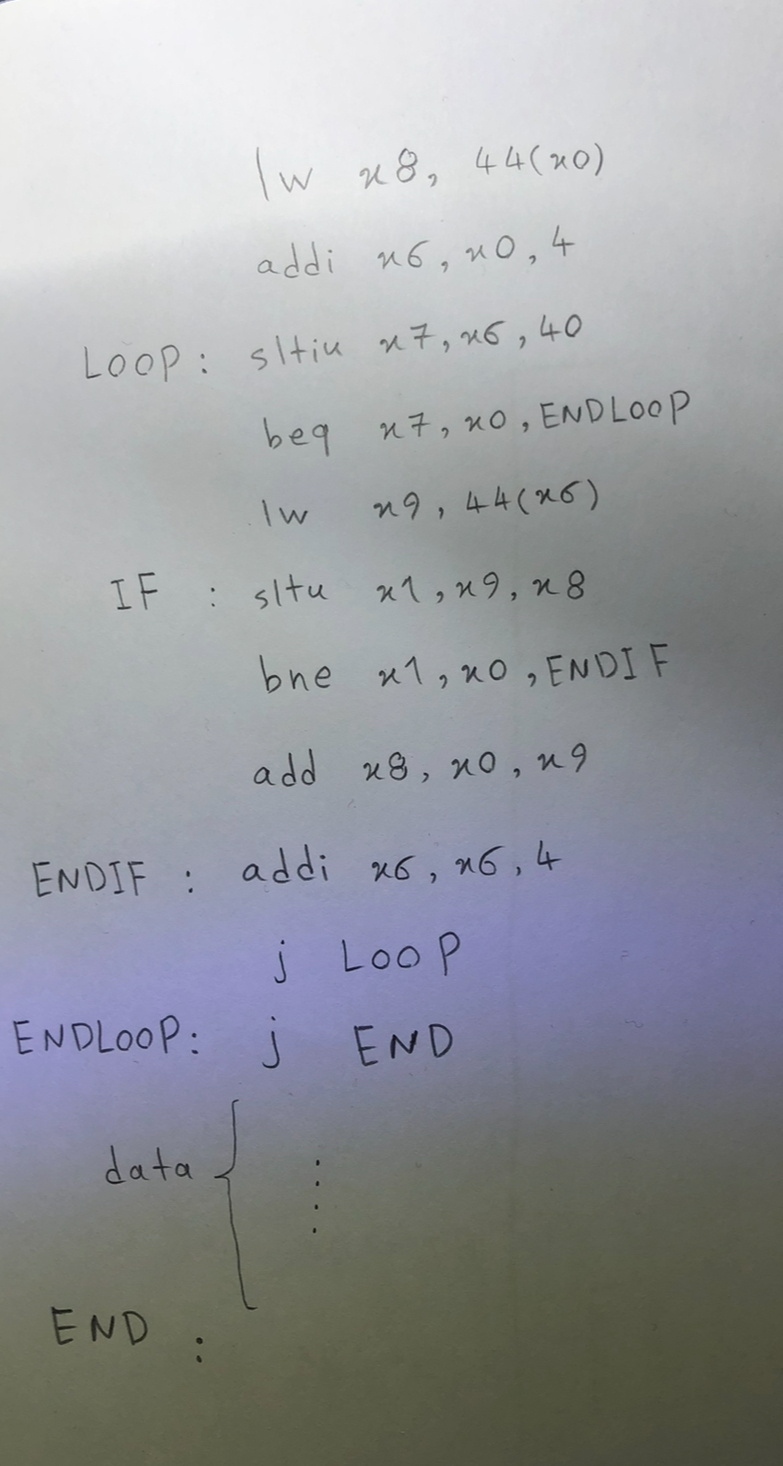 lw x8, 44(x0)
addi x6, x0, 4
LOOP: sltiu x7, x6, 40
beq x7, x0, ENDLOOP
lw x9, 44(x6)
IF : sltu x1, x9, x8
bne x1, x0, ENDIF
add x8, x0, x9
ENDIF : addi x6, x6, 4
j LOOP
ENDLOOP: j END
data { ⋮
END :